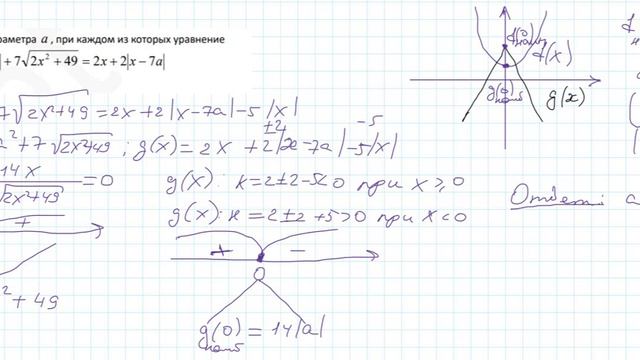 раметра a, при каждом из которых уравнение
| + 7√2x² + 49 = 2x + 2|x − 7a|
7√2x²+49 = 2x + 2|x−7a| −5|x|
±2 −5
² + 7√2x²+49 ; g(x) = 2x + 2|x −7a| −5|x|
14x
√2x²+49 = 0
g(x): k = 2 ± 2 − 5 < 0 при x ≥ 0
g(x): k = 2 ± 2 + 5 > 0 при x < 0
+
+ −
0
² + 49
g(0) = 14|a|
наиб
f(0)
наим
f(x)
g(0)
наиб
g(x)
Ответ: a